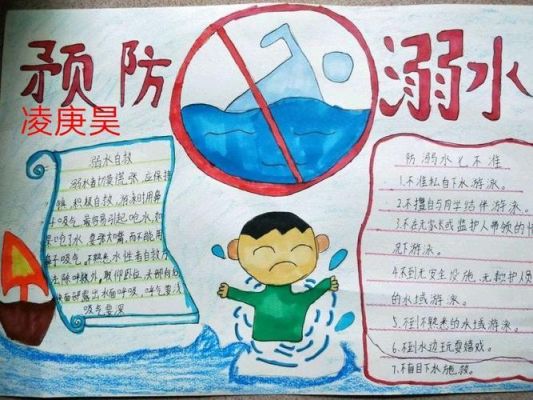 预防
溺水
凌庚昊
溺水自救
溺水者切莫慌张,应保持
镇,积极自救,游泳时用鼻
子吸气,最容易引起呛水,如
呛了水,要张大嘴,而不能用
子吸气,不熟悉水性者自救
除呼救外,取仰卧位,头部向
使面部露出水面呼吸,呼气要浅
吸气要深
防溺水七不准
1.不准私自下水游泳。
2.不擅自与同学结伴游泳。
3.不在无家长或监护人带领的情
况下游泳。
4.不到无安全设施、无救护人员
的水域游泳。
5.不到不熟悉的水域游泳。
6.不到水边玩耍嬉戏。
7.不盲目下水施救。